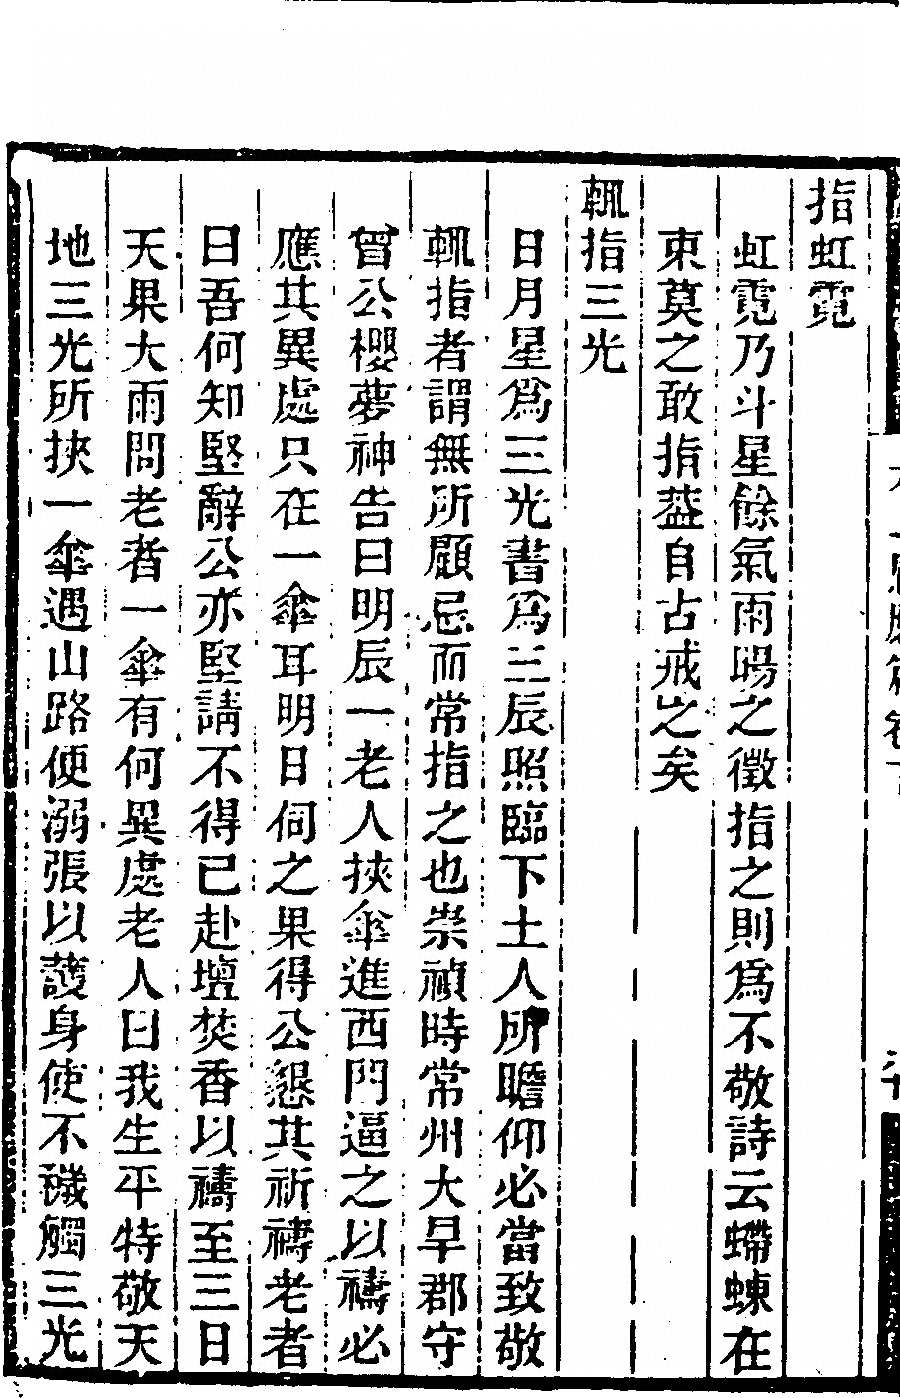 指虹霓
虹霓乃斗星餘氣雨暘之徵指之則爲不敬詩云螮蝀在
東莫之敢指葢自古戒之矣
輒指三光
日月星爲三光書爲三辰照臨下土人所瞻仰必當致敬
輒指者謂無所顧忌而常指之也崇禎時常州大旱郡守
曾公櫻夢神告曰明辰一老人挾傘進西門逼之以禱必
應其異處只在一傘耳明日伺之果得公懇其祈禱老者
曰吾何知堅辭公亦堅請不得已赴壇焚香以禱至三日
天果大雨問老者一傘有何異處老人曰我生平特敬天
地三光所挾一傘遇山路便溺張以護身使不穢觸三光